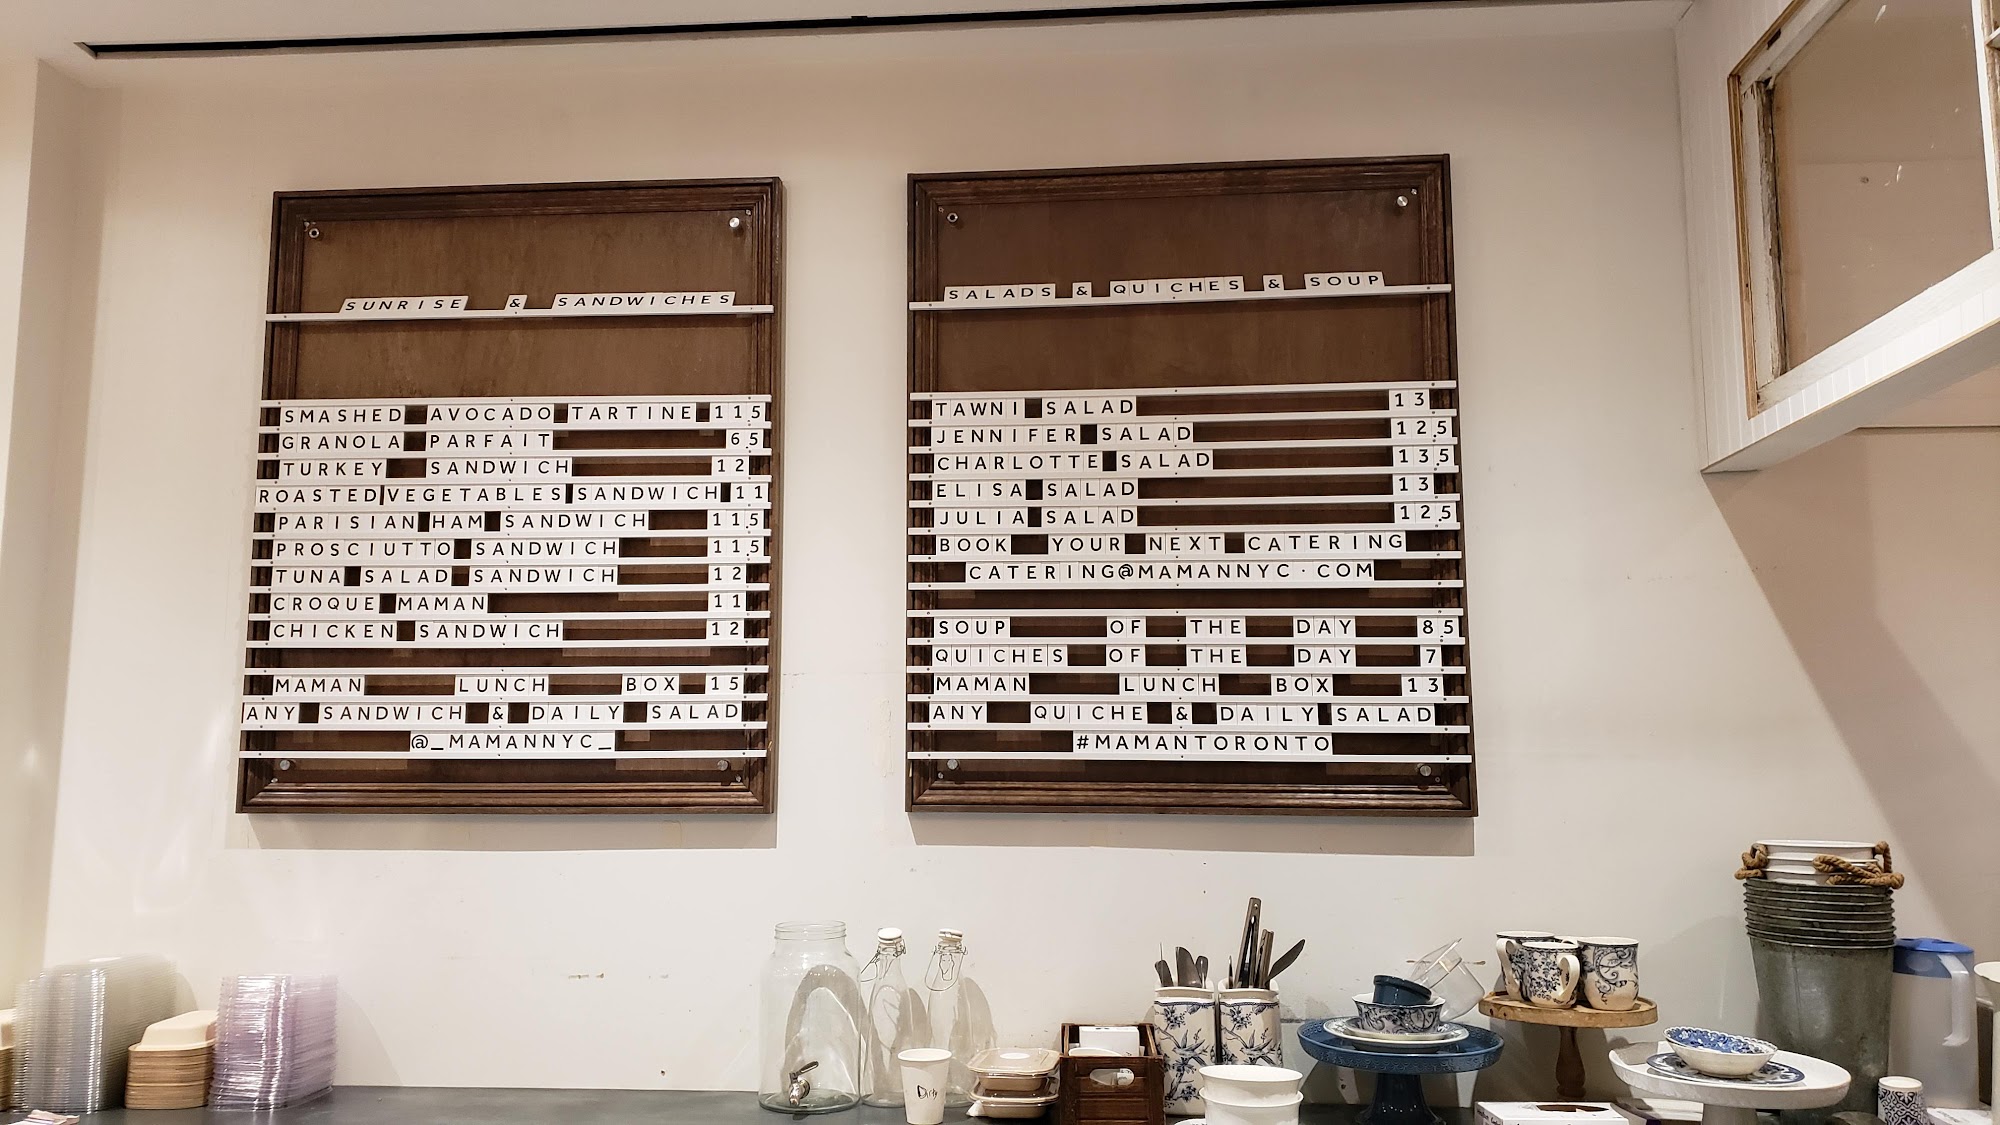 SUNRISE & SANDWICHES
SMASHED AVOCADO TARTINE 11.5
GRANOLA PARFAIT 6.5
TURKEY SANDWICH 12
ROASTED VEGETABLES SANDWICH 11
PARISIAN HAM SANDWICH 11.5
PROSCIUTTO SANDWICH 11.5
TUNA SALAD SANDWICH 12
CROQUE MAMAN 11
CHICKEN SANDWICH 12
MAMAN LUNCH BOX 15
ANY SANDWICH & DAILY SALAD
@_MAMANNYC_
SALADS & QUICHES & SOUP
TAWNI SALAD 13
JENNIFER SALAD 12.5
CHARLOTTE SALAD 13.5
ELISA SALAD 13
JULIA SALAD 12.5
BOOK YOUR NEXT CATERING
CATERING@MAMANNYC·COM
SOUP OF THE DAY 8.5
QUICHES OF THE DAY 7
MAMAN LUNCH BOX 13
ANY QUICHE & DAILY SALAD
#MAMANTORONTO